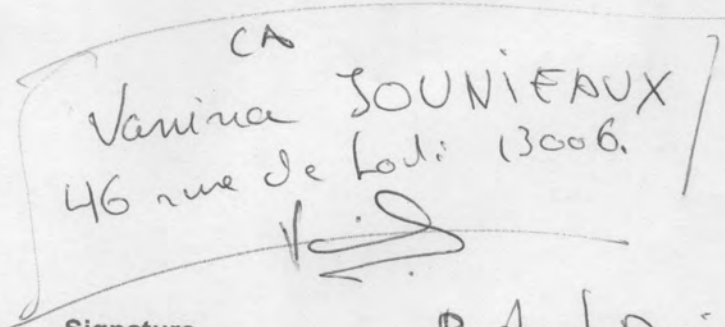 CA
Vanina JOUNIEAUX
46 rue de Lodi 13006.
Signature